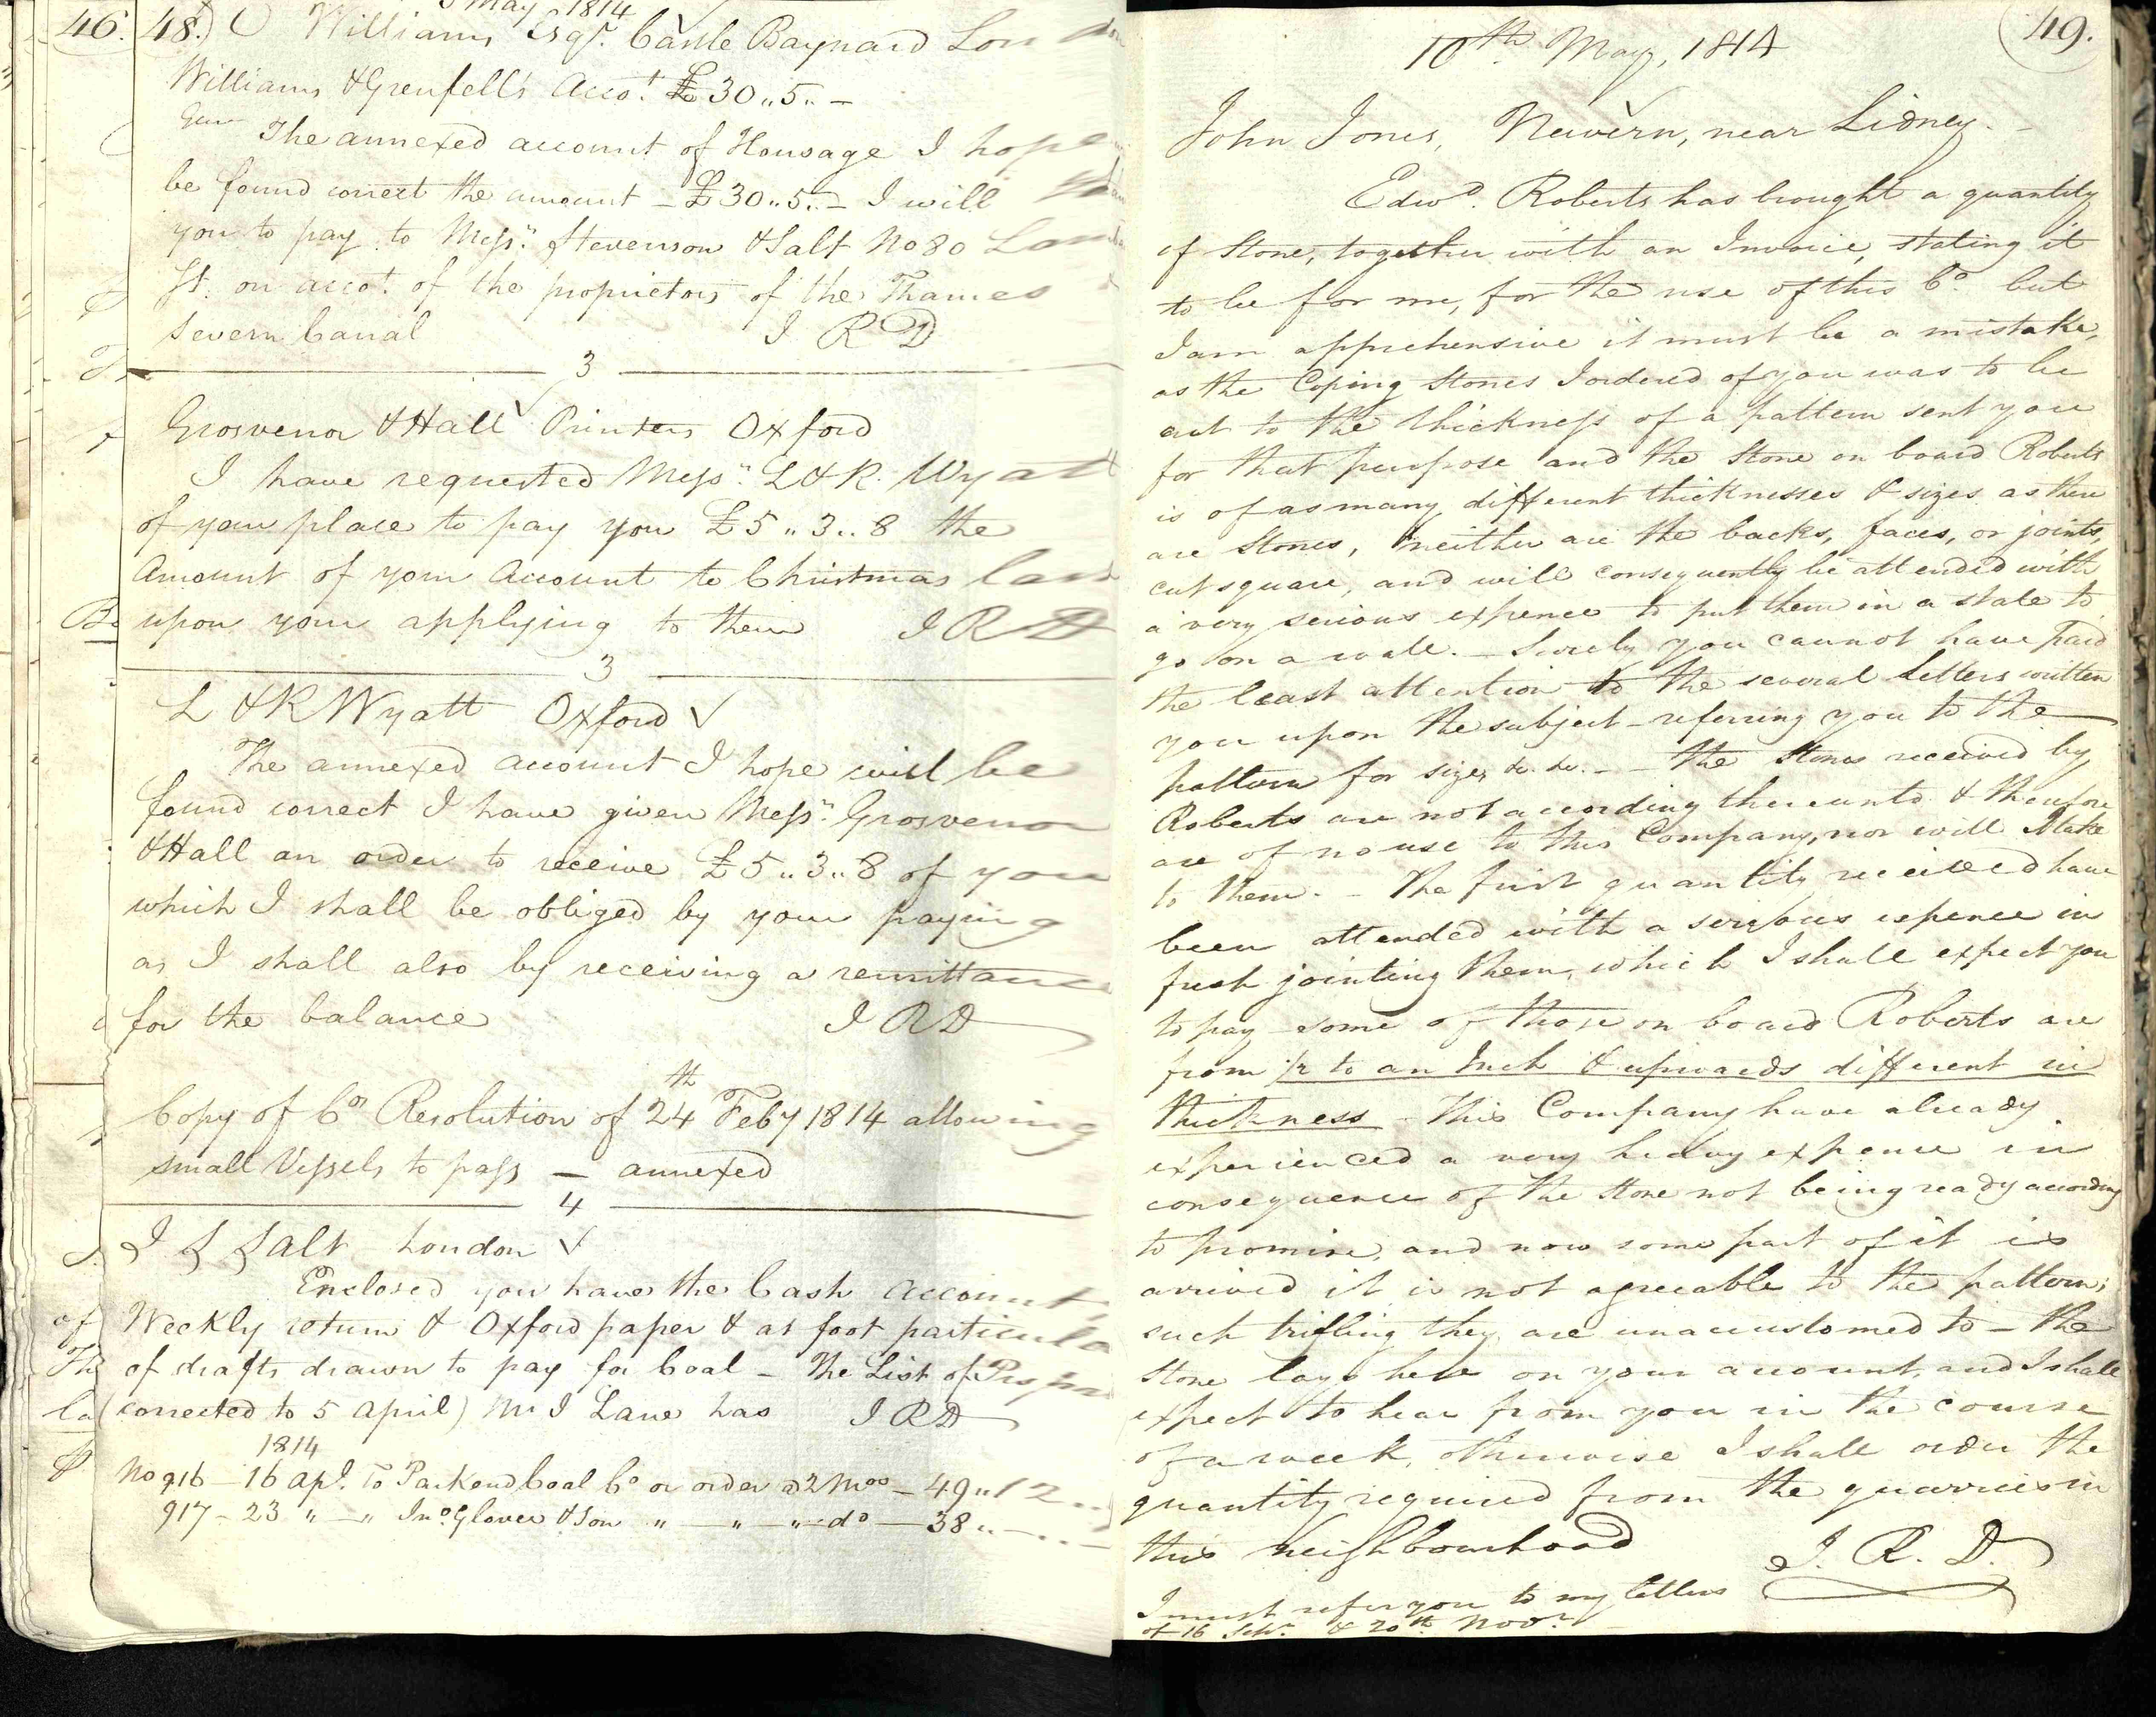 46.
48.
3 May 1814
Williams Esqr. Castle Baynard London
Williams & Grenfell's Accot. £30..5..–
Gen
The annexed account of Housage I hope
be found correct the amount – £30..5..– I will
you to pay to Messrs. Stevenson & Salt No 80
St. on accot. of the proprietors of the Thames
Severn Canal I R D
3
Grosvenor & Hall Printers Oxford
I have requested Messrs. L & R. Wyatt
of your place to pay you £5..3..8 the
Amount of your Account to Christmas last
upon your applying to them I R D
3
L & R Wyatt Oxford
The annexed account I hope will be
found correct I have given Messrs. Grosvenor
& Hall an order to receive £5..3..8 of you
which I shall be obliged by your paying
as I shall also by receiving a remittance
for the balance I R D
Copy of Cos Resolution of 24th Feby 1814 allowing
small Vessels to pass – annexed
4
I S Salt London
Enclosed you have the Cash Account,
Weekly return & Oxford paper & at foot particula
of drafts drawn to pay for Coal – The List of Propri
(corrected to 5 April) Mr I Lane has I R D
1814
No 916 – 16 Apl. To Parkend Coal Co or order @ 2 Mos – 49..12..
917 – 23 " – " Jno. Glover & Son " – " – " – do – 38..–..–
49.
10th May, 1814
John Jones, Newern, near Lidney.
Edwd. Roberts has brought a quantity
of Stone, together with an Invoice, stating it
to be for me, for the use of this Co. but
I am apprehensive it must be a mistake,
as the Coping Stones I ordered of you was to be
cut to the thickness of a pattern sent you
for that purpose and the Stone on board Roberts
is of as many different thicknesses & sizes as there
are Stones, neither are the backs, faces, or joints,
cut square, and will consequently be attended with
a very serious expence to put them in a state to
go on a wall. – Surely you cannot have paid
the least attention to the several Letters written
you upon the subject – referring you to the
pattern for sizes &c. &c. – – the Stones received by
Roberts are not according thereunto & therefore
are of no use to this Company, nor will I take
to them. – The first quantity received have
been attended with a serious expence in
fresh jointing them, which I shall expect you
to pay – some of those on board Roberts are
from 1/2 to an Inch & upwards different in
thickness – This Company have already
experienced a very heavy expence in
consequence of the Stone not being ready according
to promise, and now some part of it is
arrived it is not agreeable to the pattern;
such trifling they are unaccustomed to – the
Stone lays here on your account, and I shall
expect to hear from you in the course
of a week, otherwise I shall order the
quantity required from the quarries in
this neighbourhood I. R. D.
I must refer you to my Letters
of 16 Sepr. & 20th Novr.